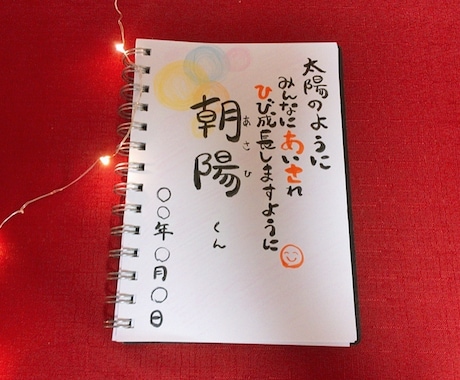 太陽のように
みんなにあいされ
ひび成長しますように
朝陽くん
あさひ
〇〇年〇月〇日